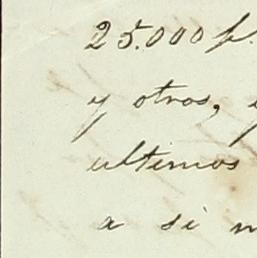 25.000 p.
y otros,
ultimos
a si